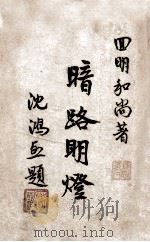 四明和尚著
暗路明燈
沈鴻題